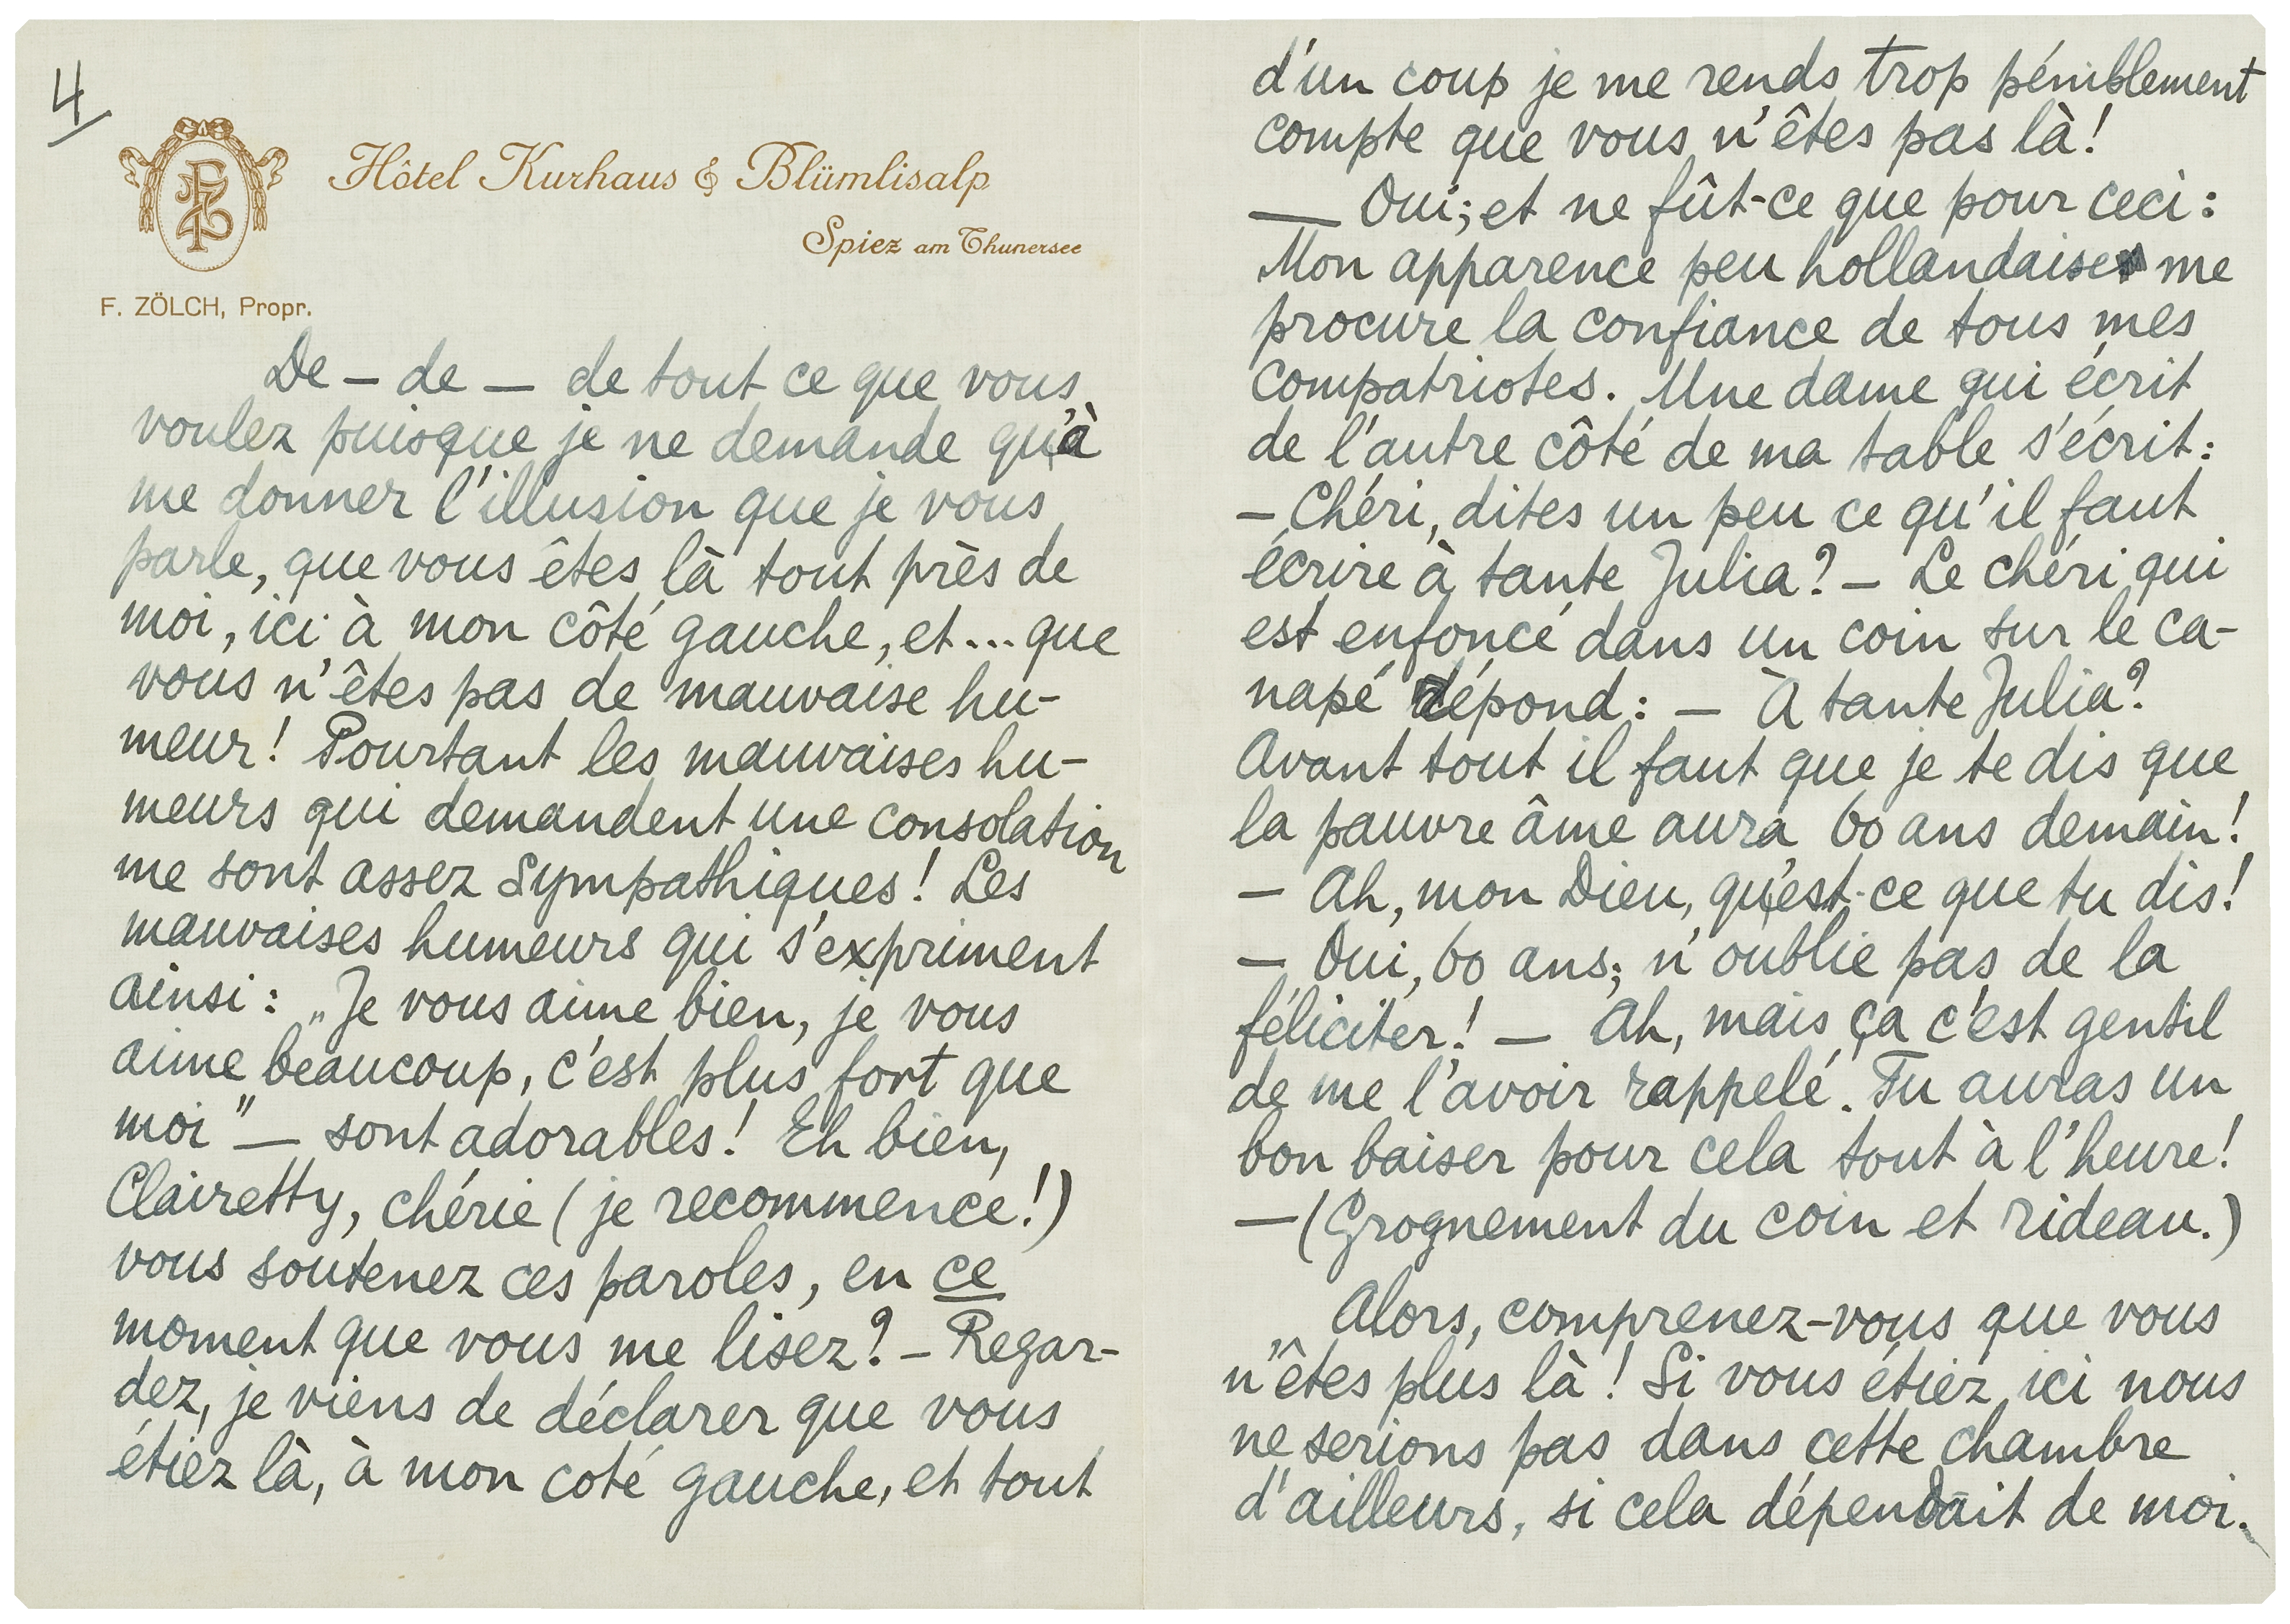 4
FZ
Hôtel Kurhaus & Blümlisalp
Spiez am Thunersee
F. ZÖLCH, Propr.
De – de – de tout ce que vous
voulez puisque je ne demande qu'à
me donner l'illusion que je vous
parle, que vous êtes là tout près de
moi, ici à mon côté gauche, et... que
vous n'êtes pas de mauvaise hu-
meur! Pourtant les mauvaises hu-
meurs qui demandent une consolation
me sont assez sympathiques! Les
mauvaises humeurs qui s'expriment
ainsi: „Je vous aime bien, je vous
aime beaucoup, c'est plus fort que
moi" — sont adorables! Eh bien,
Clairetty, chérie (je recommence!)
vous soutenez ces paroles, en ce
moment que vous me lisez? – Regar-
dez, je viens de déclarer que vous
étiez là, à mon coté gauche, et tout
d'un coup je me rends trop péniblement
compte que vous n'êtes pas là!
— Oui; et ne fût-ce que pour ceci:
Mon apparence peu hollandaise me
procure la confiance de tous mes
compatriotes. Une dame qui écrit
de l'autre côté de ma table s'écrit:
– Chéri, dites un peu ce qu'il faut
écrire à tante Julia? – Le chéri qui
est enfoncé dans un coin sur le ca-
napé répond: – À tante Julia?
Avant tout il faut que je te dis que
la pauvre âme aura 60 ans demain!
– Ah, mon Dieu, qu'est-ce que tu dis!
– Oui, 60 ans; n'oublie pas de la
féliciter! – Ah, mais ça c'est gentil
de me l'avoir rappelé. Tu auras un
bon baiser pour cela tout à l'heure!
— (Grognement du coin et rideau.)
Alors, comprenez-vous que vous
n'êtes plus là! Si vous étiez ici nous
ne serions pas dans cette chambre
d'ailleurs, si cela dépendait de moi.